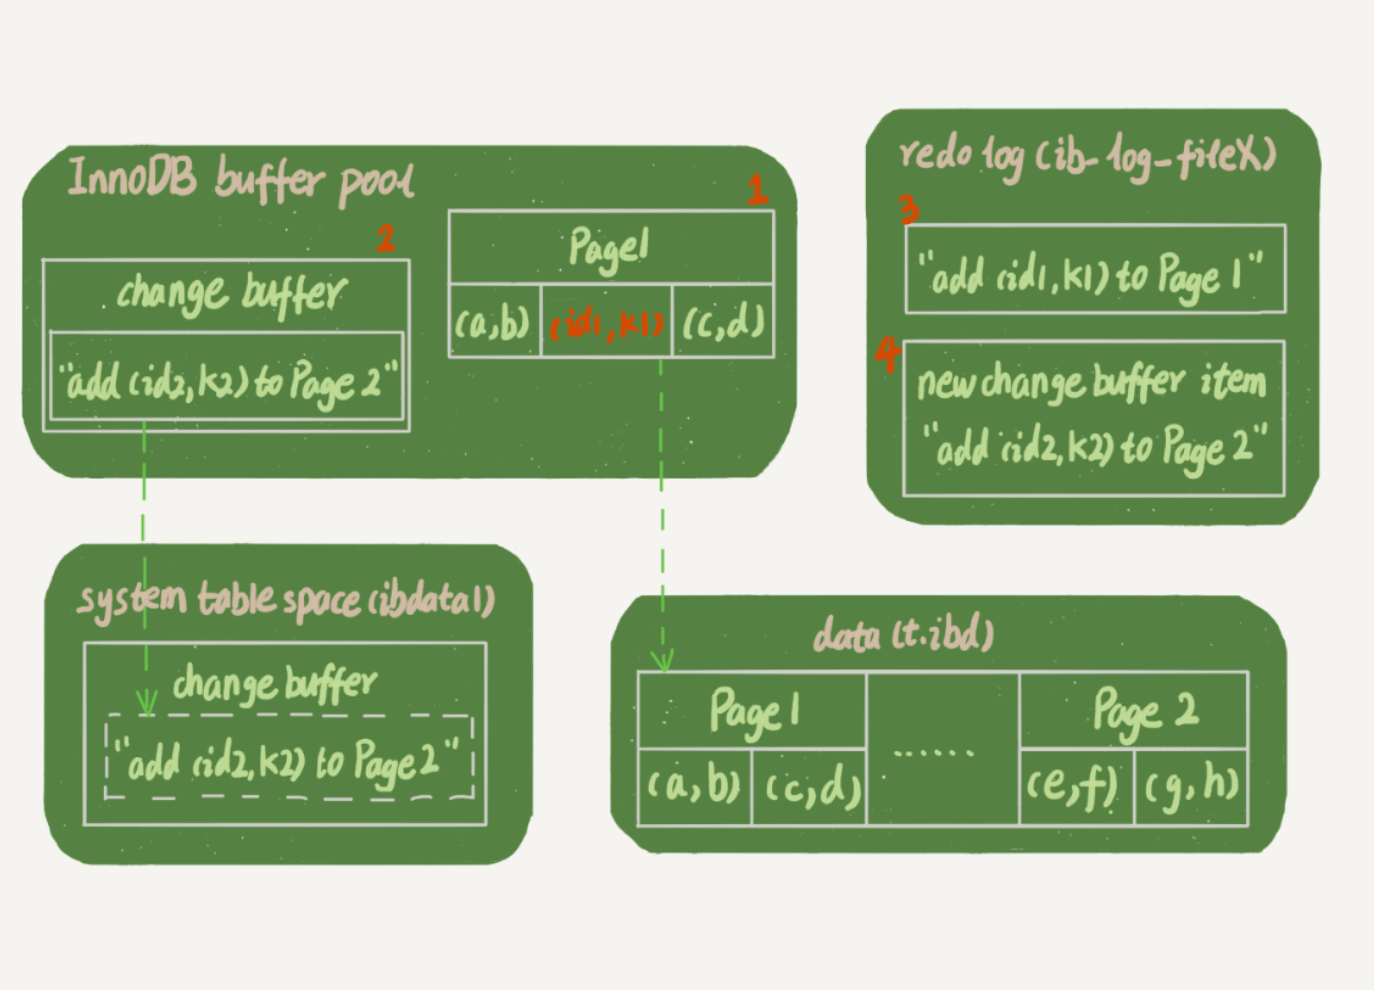 InnoDB buffer pool
1
2
Page1
(a,b) (id1,k1) (c,d)
change buffer
"add (id2,k2) to Page 2"
redo log (ib_log_fileX)
3
"add (id1,k1) to Page 1"
4
new change buffer item
"add (id2,k2) to Page 2"
system table space (ibdata1)
change buffer
"add (id2,k2) to Page2"
data (t.ibd)
Page1 ...... Page 2
(a,b) (c,d) (e,f) (g,h)